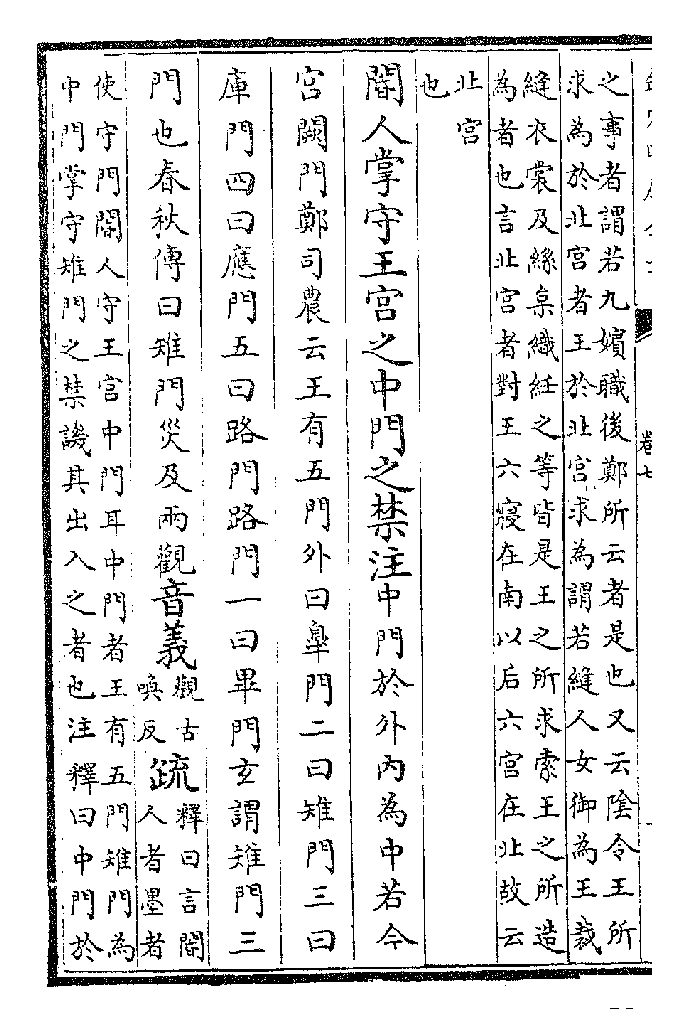 卷七
之事者謂若九嬪職後鄭所云者是也又云陰令王所
求為於北宫者王於北宫求為謂若縫人女御為王裁
縫衣裳及絲枲織紝之等皆是王之所求索王之所造
為者也言北宫者對王六寢在南以后六宫在北故云
北宫
也
閽人掌守王宫之中門之禁注中門於外内為中若今
宫闕門鄭司農云王有五門外曰臯門二曰雉門三曰
庫門四曰應門五曰路門路門一曰畢門玄謂雉門三
門也春秋傳曰雉門災及兩觀音義觀古
喚反疏釋曰言閽
人者墨者
使守門閽人守王宫中門耳中門者王有五門雉門為
中門掌守雉門之禁譏其出入之者也注釋曰中門於